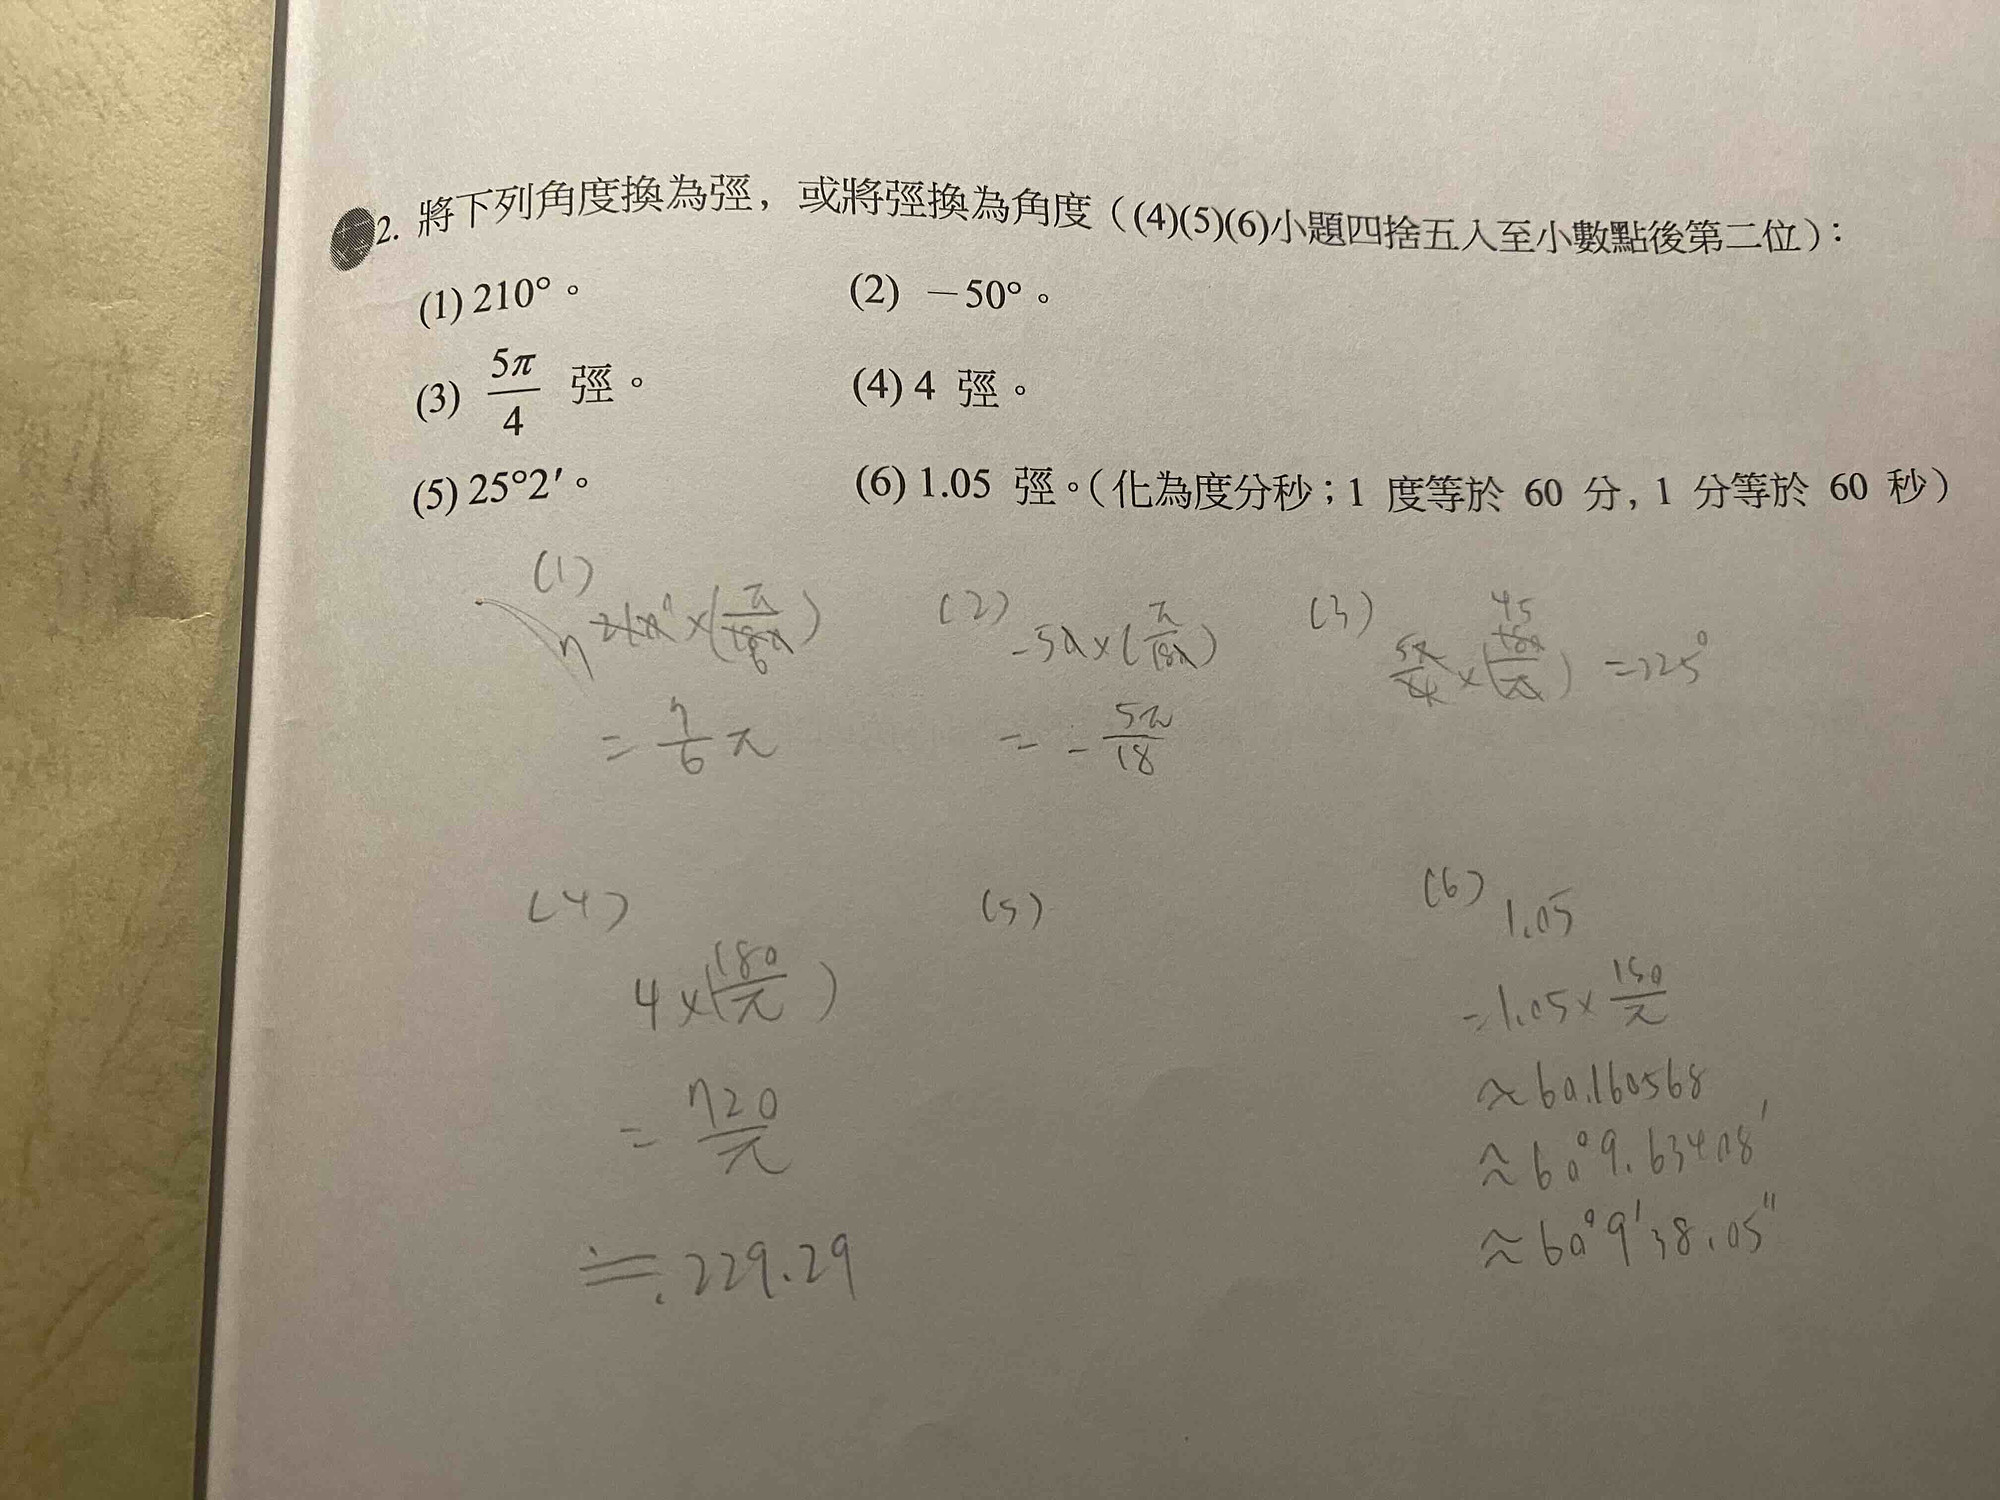 2. 將下列角度換為弳，或將弳換為角度（(4)(5)(6)小題四捨五入至小數點後第二位）：
(1) 210°。 (2) －50°。
(3) 5π/4 弳。 (4) 4 弳。
(5) 25°2′。 (6) 1.05 弳。（化為度分秒；1 度等於 60 分，1 分等於 60 秒）
(1) (2) (3)
7 210° ×(π/180) 6
= 7/6 π
-50×(π/180)
= - 5π/18
5π/4 ×(180/π) 45 =225°
(4)
4×(180/π)
= 720/π
≒ 229.29
(5)
(6) 1.05
=1.05× 180/π
≈60.160568
≈60°9.63408′
≈60°9′38.05″